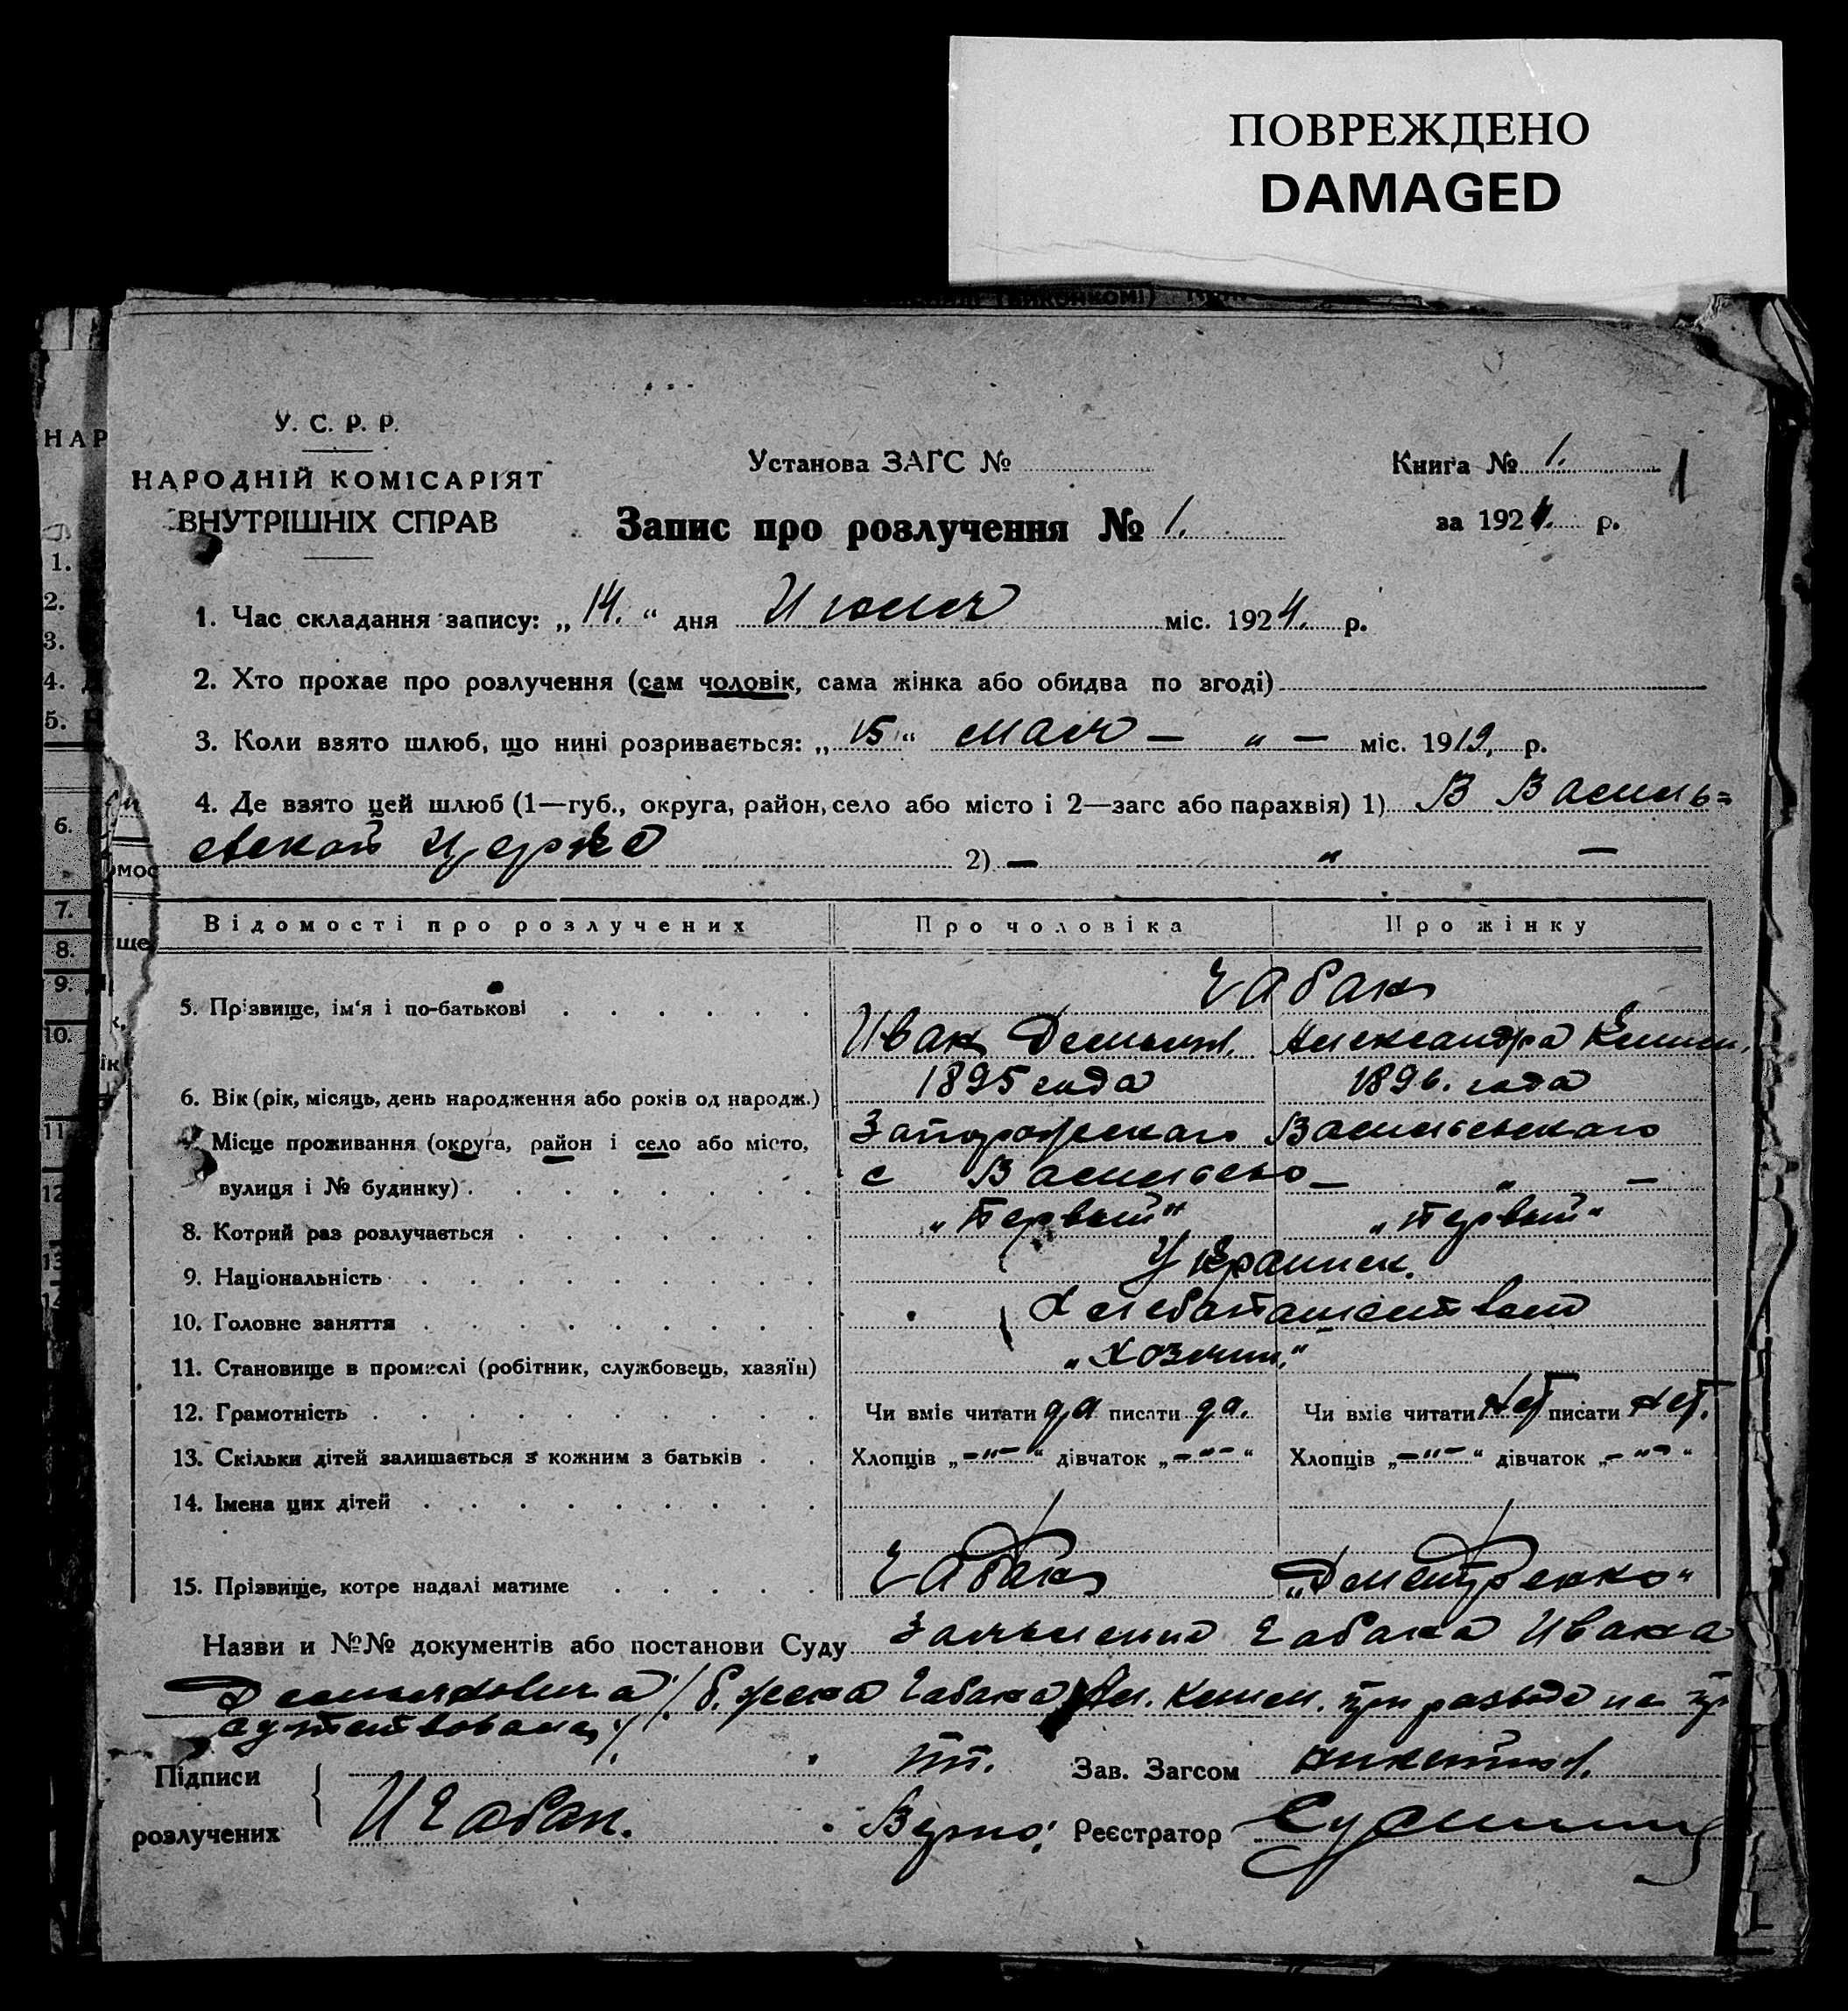 ПОВРЕЖДЕНО
DAMAGED
У. С. Р. Р.
НАРОДНІЙ КОМІСАРІЯТ
ВНУТРІШНІХ СПРАВ
Установа ЗАГС №
Книга № 1.
1
Запис про розлучення № 1.
за 1924. р.
1. Час складання запису: „14.“ дня Июля міс. 1924. р.
2. Хто прохає про розлучення (сам чоловік, сама жінка або обидва по згоді)
3. Коли взято шлюб, що нині розривається: „15“ мая — „ — міс. 1919, р.
4. Де взято цей шлюб (1—губ., округа, район, село або місто і 2—загс або парахвія) 1) В Василь=
евской церкв 2) — „ —
Відомості про розлучених Про чоловіка Про жінку
5. Прізвище, ім‘я і по-батькові Чабан
Иван Демьян. Александра Климен.
6. Вік (рік, місяць, день народження або років од народж.) 1895 года 1896. года
Місце проживання (округа, район і село або місто, Запорожскаго Васильевскаго
вулиця і № будинку) с Васильево — „ —
8. Котрий раз розлучається „Первый“ „Первый“
9. Національність Украинск.
10. Головне заняття Хлебопашеством
11. Становище в промислі (робітник, службовець, хазяїн) „Хозяин“
12. Грамотність Чи вміє читати да писати да. Чи вміє читати Нет писати Нет.
13. Скільки дітей залишається з кожним з батьків Хлопців „—"—“ дівчаток „—"—“ Хлопців „—"—“ дівчаток „—"—“
14. Імена цих дітей
15. Прізвище, котре надалі матиме Чабан
Назви и №№ документів або постанови Суду Заявление Чабана Ивана
Демьяновича /б. жена Чабана Ал. Климен. при разводе не пр
Підписи Зав. Загсом
розлучених И Чабан. Верно: Реєстратор